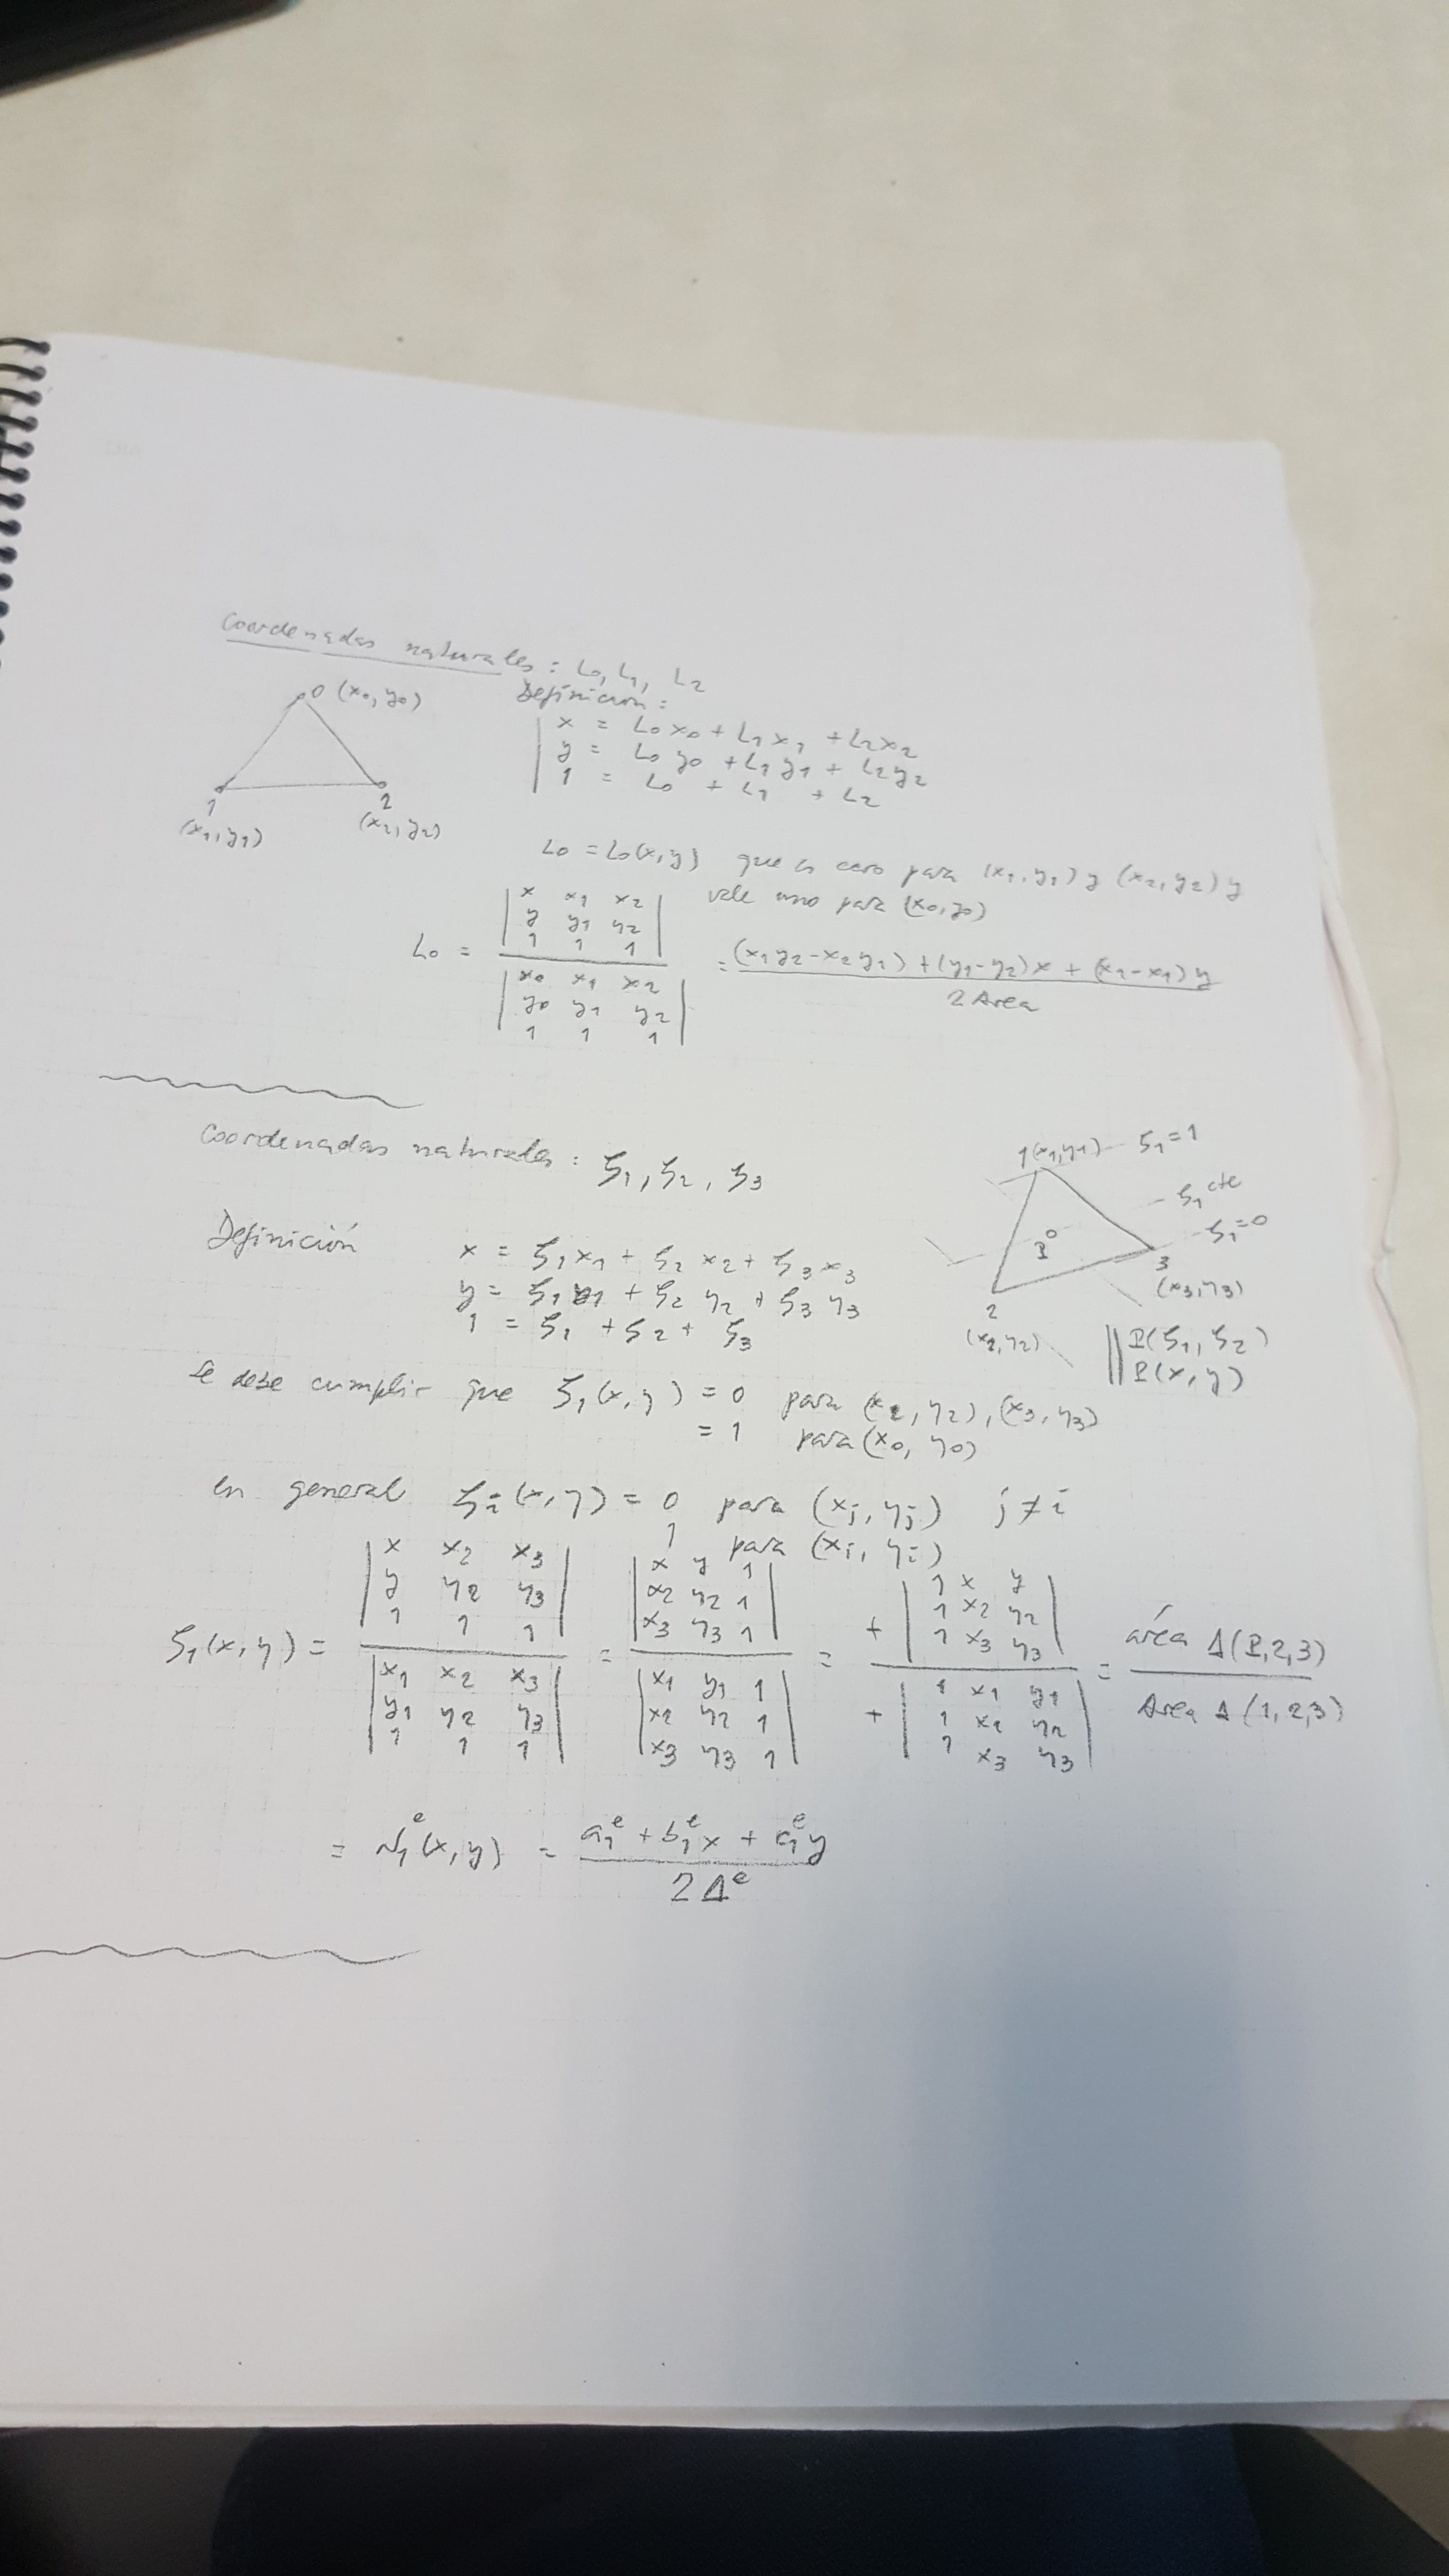 Coordenadas naturales : L0, L1, L2
0 (x0, y0)
1
(x1, y1)
2
(x2, y2)
Definición :
x = L0 x0 + L1 x1 + L2 x2
y = L0 y0 + L1 y1 + L2 y2
1 = L0 + L1 + L2
L0 = L0(x, y) que es cero para (x1, y1) y (x2, y2) y
vale uno para (x0, y0)
L0 = | x x1 x2 |
| y y1 y2 |
| 1 1 1 |
| x0 x1 x2 |
| y0 y1 y2 |
| 1 1 1 |
= (x1 y2 - x2 y1) + (y1 - y2) x + (x2 - x1) y
2 Area
Coordenadas naturales : ξ1, ξ2, ξ3
1 (x1, y1) ξ1 = 1
ξ1 cte
ξ1 = 0
P
3
(x3, y3)
2
(x2, y2)
P(ξ1, ξ2)
P(x, y)
Definición
x = ξ1 x1 + ξ2 x2 + ξ3 x3
y = ξ1 y1 + ξ2 y2 + ξ3 y3
1 = ξ1 + ξ2 + ξ3
Se debe cumplir que ξ1(x, y) = 0 para (x2, y2), (x3, y3)
= 1 para (x0, y0)
en general ξi(x, y) = 0 para (xj, yj) j ≠ i
1 para (xi, yi)
ξ1(x, y) =
| x x2 x3 |
| y y2 y3 |
| 1 1 1 |
| x1 x2 x3 |
| y1 y2 y3 |
| 1 1 1 |
=
| x y 1 |
| x2 y2 1 |
| x3 y3 1 |
| x1 y1 1 |
| x2 y2 1 |
| x3 y3 1 |
=
+ | 1 x y |
| 1 x2 y2 |
| 1 x3 y3 |
+ | 1 x1 y1 |
| 1 x2 y2 |
| 1 x3 y3 |
= área Δ(P,2,3)
Area Δ(1,2,3)
= N1^e(x, y) = a1^e + b1^e x + c1^e y
2 Δ^e